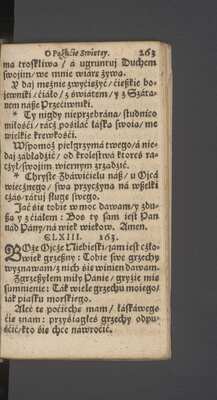 O Poſtcie Swiętey. 263
ma troſkliwa / a ugruntuj Duchem
ſwojim / we mnie wiárę żywą.
Y daj możnie zwyćiężyć / ćieſkie bo-
jowniki / ćiáło / z świátem / y z Száta-
nem náße Przećiwniki.
* Ty nigdy nieprzebrána / ſtudnico
miłośći / rácż pośiláć łáſką ſwoią / me
wielkie krewkośći.
Wſpomoż pielgrzymá twego / á nie-
daj zábłądźić / od kroleſtwá ktoreś rá-
cżył / ſwojim wiernym zrządźić.
* Chryſte Zbáwićielu náß / u Ojcá
wiecżnego / ſwą przycżyną ná wßelki
cżás / rátuj ſługę ſwego.
Jáć śię tobie w moc dawam / y z du-
ßą y z ćiáłem : Boś ty ſam ieſt Pan
nád Pány / ná wiek wiekow. Amen.
CLXIII. 163.
BOże Ojcże Niebieſki / jam ieſt cżło-
wiek grzeßny : Tobie ſwe grzechy
wyznawam / z nich śię winien dawam.
Zgrzeßyłem miły Pánie / gryźie mię
ſumnienie : Ták wiele grzechu mojego /
iák piaſku morſkiego.
Aleć tę poćiechę mam / łáſkáwego
ćię znam : przyśiągłeś grzechy odpu-
śćić / kto śię chce náwroćić.